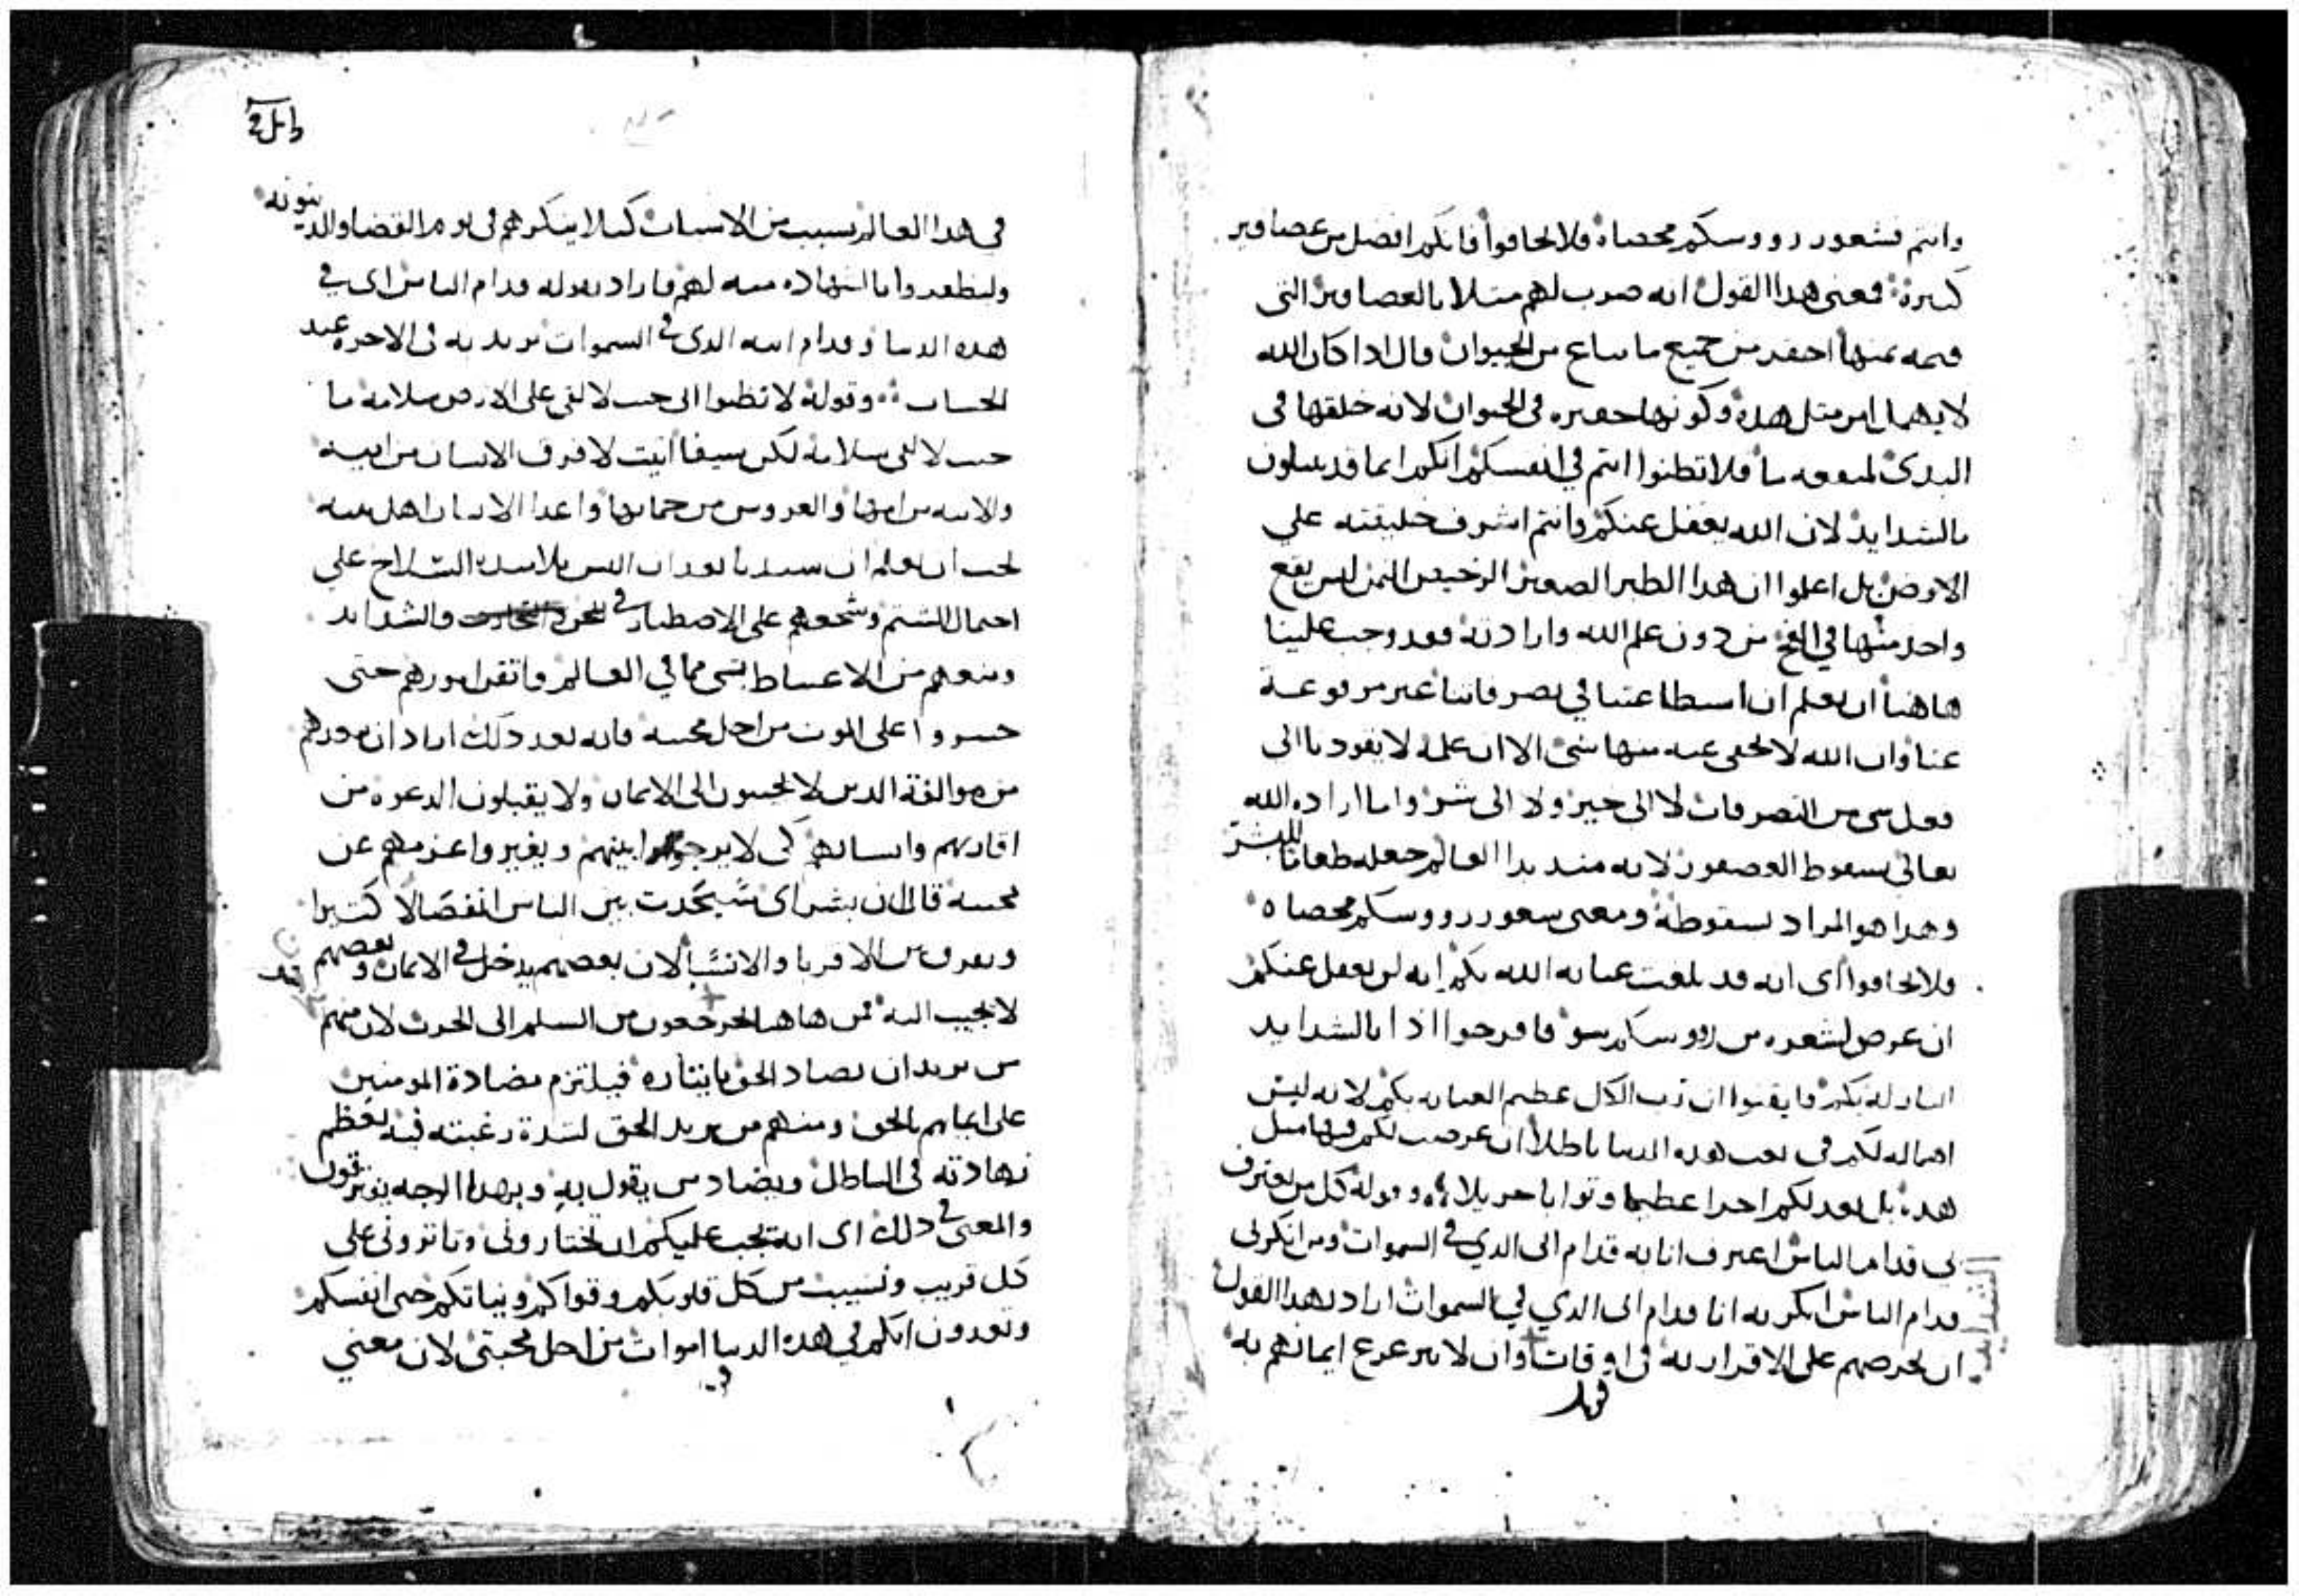 وانتم فشعور رووسكم محصاة فلا تخافوا فانكم افضل من عصافير
كثيرة فمعنى هذا القول انه ضرب لهم مثلا بالعصافير التي
قيمة ثمنها احقر من جميع ما يباع من الحيوان قال اذا كان الله
لا يهمل امر مثل هذه وكونها حقيره في الحيوان لانه خلقها في
البدئ لمنفعه ما فلا تظنوا انتم في انفسكم انكم انما قد تبتلون
بالشدايد لان الله يغفل عنكم وانتم اشرف خليقته علي
الارض بل اعلموا ان هذا الطير الصغير الرخيص الثمن ليس يقع
واحد منها في الفخ من دون علم الله وارادته فقد وجب علينا
هاهنا ان نعلم ان استطاعتنا في تصرفاتنا غير مرفوعة
عنا وان الله لا يخفى عنه منها شى الا ان علمه لا يقودنا الى
فعل شى من التصرفات لا الى خير ولا الى شر واما اراده الله
تعالى بسقوط العصفور لانه منذ بدا العالم جعله طعاما للبشر
وهذا هو المراد بسقوطه ومعنى شعور رووسكم محصاه
فلا تخافوا اى انه قد بلغت عنايه الله بكم انه لن يغفل عنكم
ان عرض لشعره من رووسكم سو فافرحوا اذا بالشدايد
النازله بكم فايقنوا ان رب الكل عظيم العنايه بكم لانه ليس
اهماله لكم في تعب هذه الدنيا باطلا ان عرضت لكم فيها مثل
هذه بل يعد لكم اجرا عظيما وثوابا جزيلا وقوله كل من يعترف
بي قدام الناس اعترف انا به قدام ابى الذي في السموات ومن انكرني
قدام الناس انكر به انا قدام ابى الذي في السموات اراد بهذا القول
ان يحرصهم على الاقرار به في اوقات وان لا يتزعزع ايمانهم به
الشدايد
في هذا العالم بسبب من الاسباب كيلا ينكرهم في يوم القضا والدينونه
وليظهروا واما الشهاده منه لهم فاراد بقوله قدام الناس اى في
هذه الدنيا وقدام ابيه الذى في السموات يريد به في الاخره عند
الحساب وقوله لا تظنوا انى جيت لالقى على الارض سلامه ما
جيت لالقى سلامه لكن سيفا اتيت لافرق الانسان من ابيه
والابنه من امها والعروس من حماتها واعدا الانسان اهل بيته
يجب ان نعلم ان سيدنا بعد ان البس تلاميذه السلاح علي
احتمال الشتم وشجعهم على الاصطبار في المحن والشدايد
ومنعهم من الاغتباط بشى مما في العالم واتقن امورهم حتى
جسروا على الموت من اجل محبته فانه بعد ذلك اراد ان يحذرهم
من موالفة الذين لا يجيبون الى الايمان ولا يقبلون الدعوه من
اقاربهم وانسابهم كى لا يرجعوا اليهم ويغيروا عزمهم عن
محبته قال ان بشراى سيحدث بين الناس انفصالا كثيرا
ويفرق بين الاقربا والانسبا لان بعضهم يدخل في الايمان وبعضهم
لا يجيب اليه فمن هاهنا يخرجون من السلم الى الحرب لان منهم
من يريد ان يضاد الحق بايثاره فيلتزم مضادة المومنين
على ايمانهم بالحق ومنهم من يريد الحق لشدة رغبته فيه يعظم
زهادته في الباطل ويضاد من يقول به وبهذا الوجه يفترقون
والمعنى في ذلك اى انه يجب عليكم ان تختاروني وتاثروني على
كل قريب ونسيب من كل قلوبكم وقواكم ونياتكم حتى انفسكم
وتعدون انكم في هذه الدنيا اموات من اجل محبتي لان معني